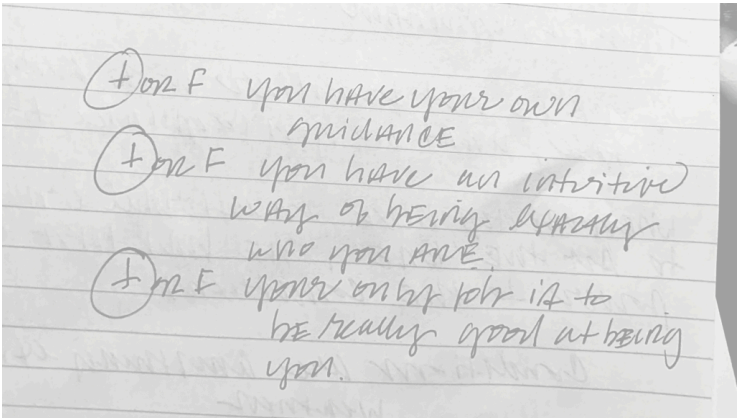 T or F you have your own
guidance
T or F you have an intuitive
way of being exactly
who you are.
T or F your only job is to
be really good at being
you.